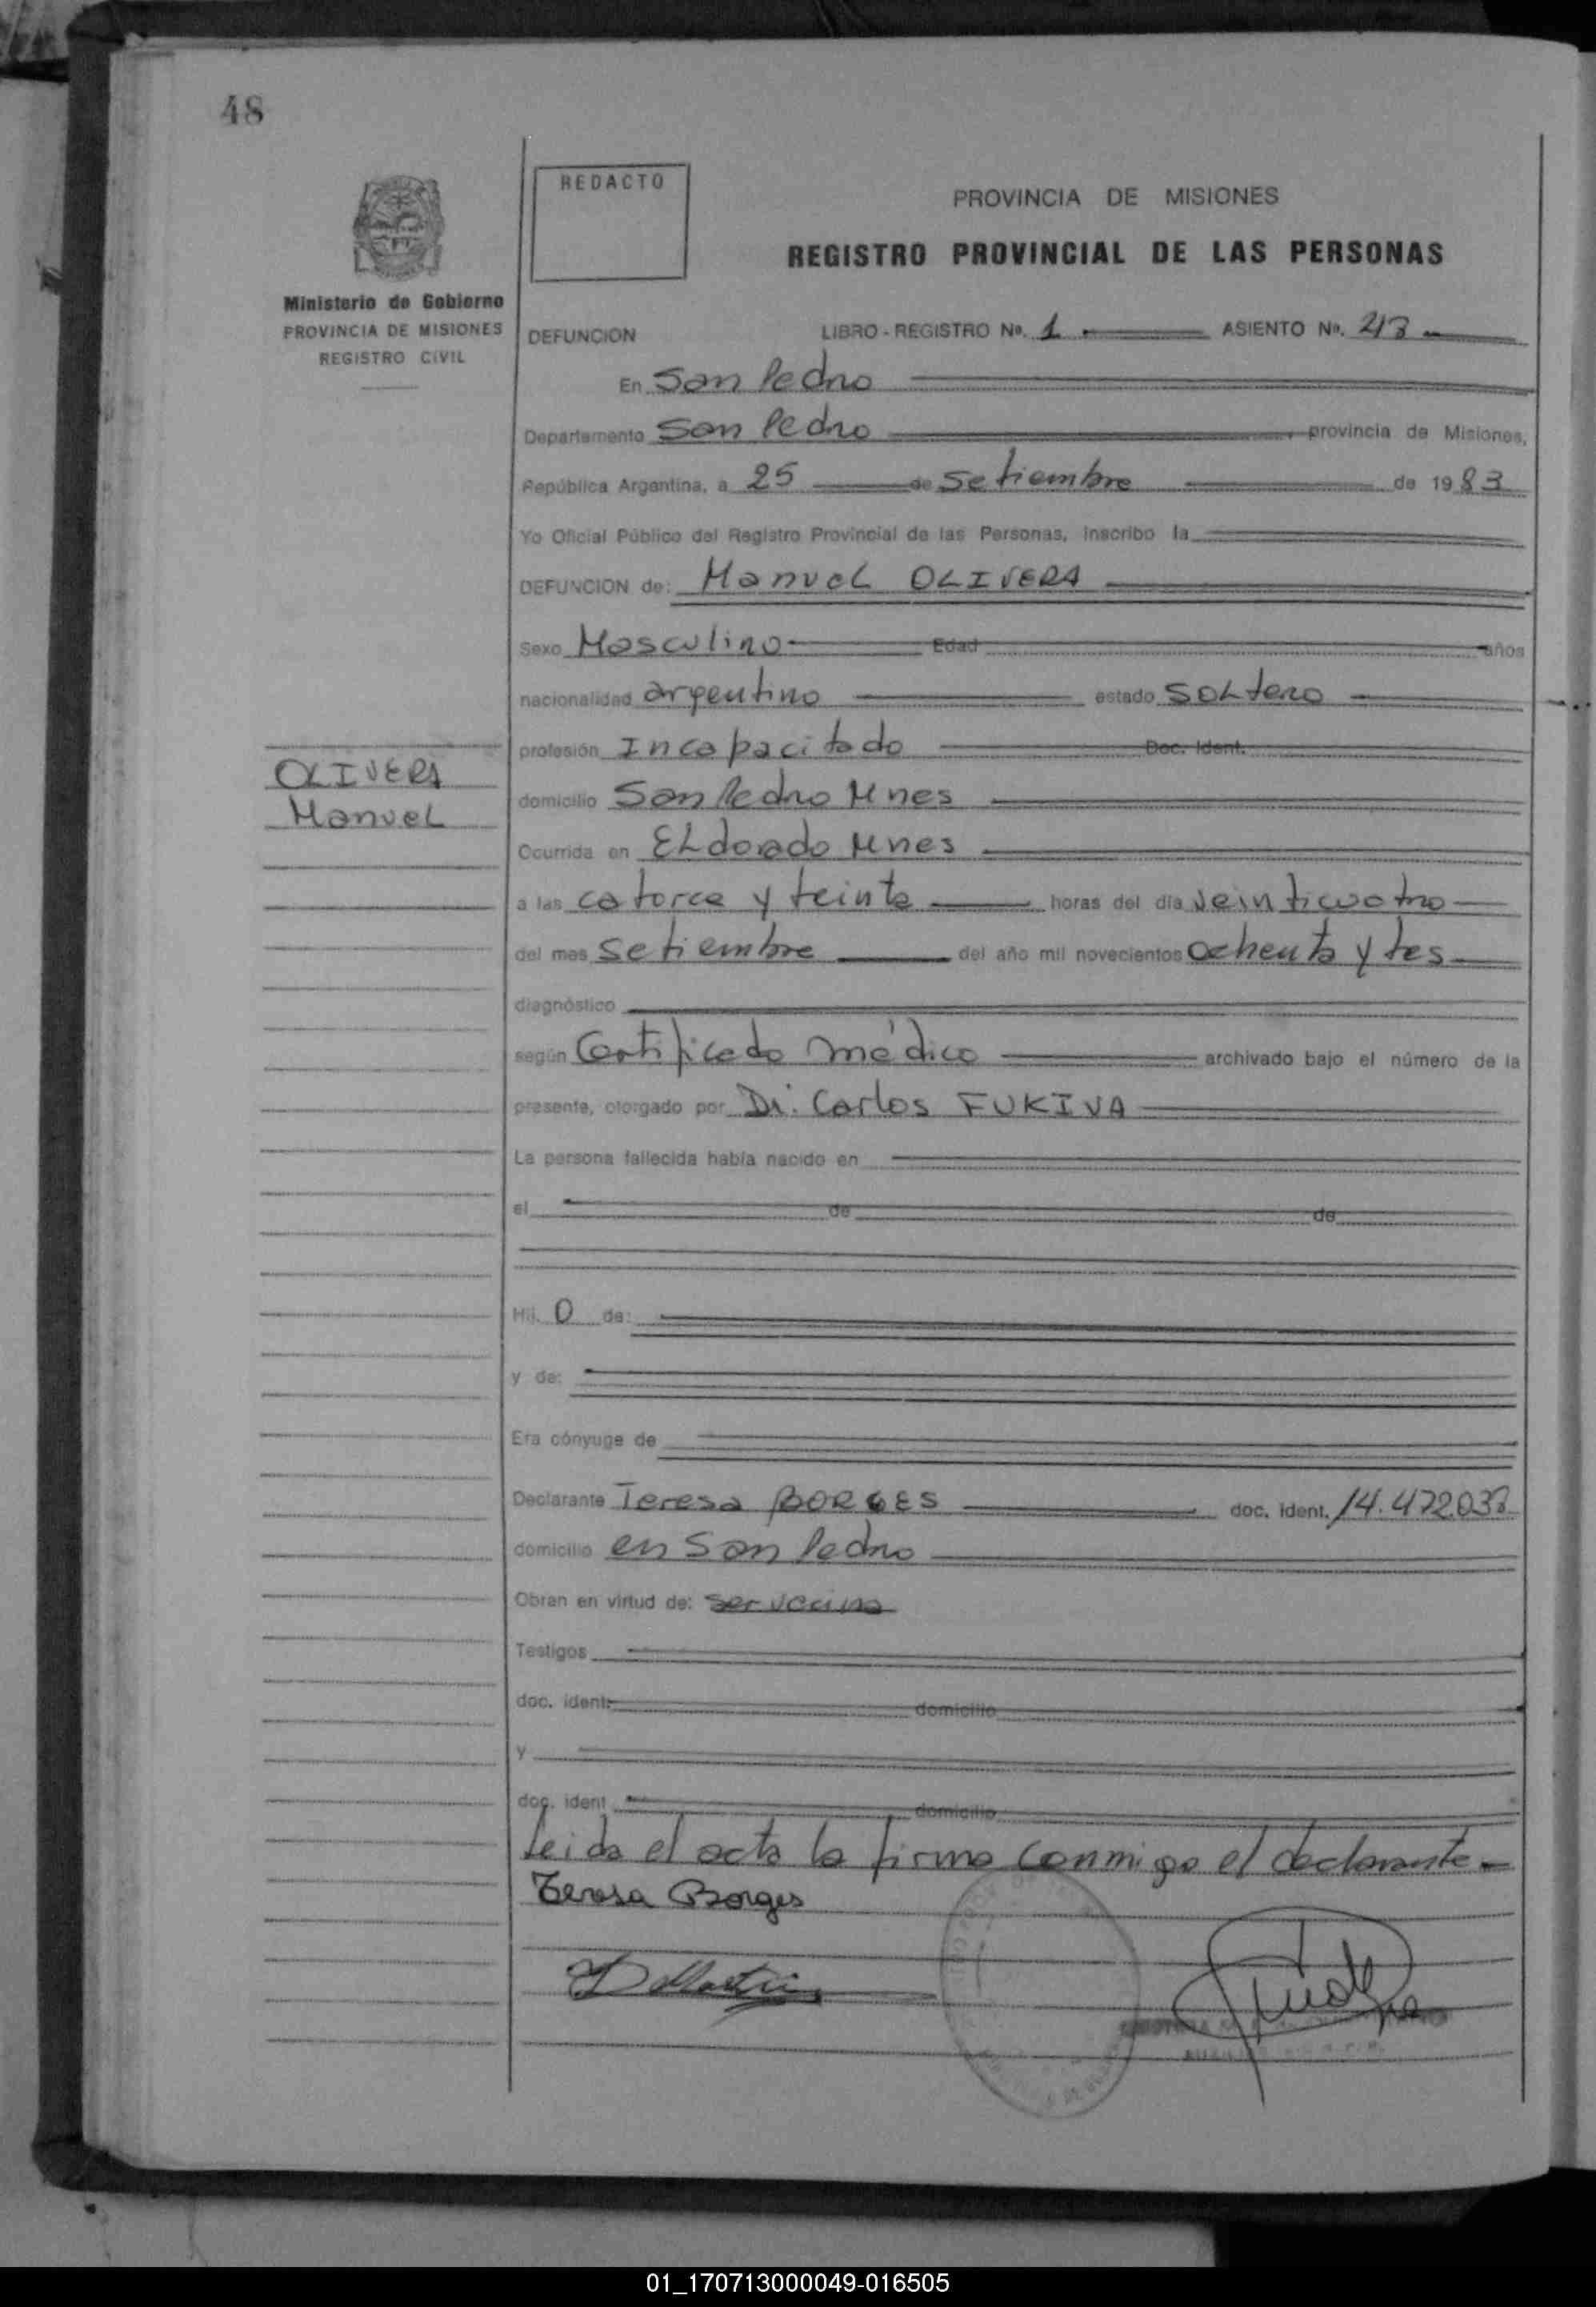 48
REDACTO
PROVINCIA DE MISIONES
REGISTRO PROVINCIAL DE LAS PERSONAS
Ministerio de Gobierno
PROVINCIA DE MISIONES
REGISTRO CIVIL
DEFUNCION LIBRO - REGISTRO Nº. 1 ASIENTO Nº.
En San Pedro
Departamento San Pedro, provincia de Misiones,
República Argentina, a 25 de Setiembre de 1983
Yo Oficial Público del Registro Provincial de las Personas, inscribo la
DEFUNCION de: Manuel OLIVERA
Sexo Masculino Edad años
nacionalidad argentino estado SOLtero
profesión Incapacitado Doc. Ident.
OLIVERA
Manuel
domicilio San Pedro Mnes
Ocurrida en ELdorado Mnes
a las catorce y teinta horas del día veinticuatro
del mes Setiembre del año mil novecientos ochenta y tes
diagnóstico
según Certificado médico archivado bajo el número de la
presente, otorgado por Dr. Carlos FUKIVA
La persona fallecida había nacido en
el de de
Hij. O de:
y de:
Era cónyuge de
Declarante Teresa BORGES doc. ident.
domicilio en San Pedro
Obran en virtud de: ser vecina
Testigos
doc. ident. domicilio
y
doc. ident domicilio
Leida el acta la firma conmigo el declarante
Teresa Borges
01_170713000049-016505